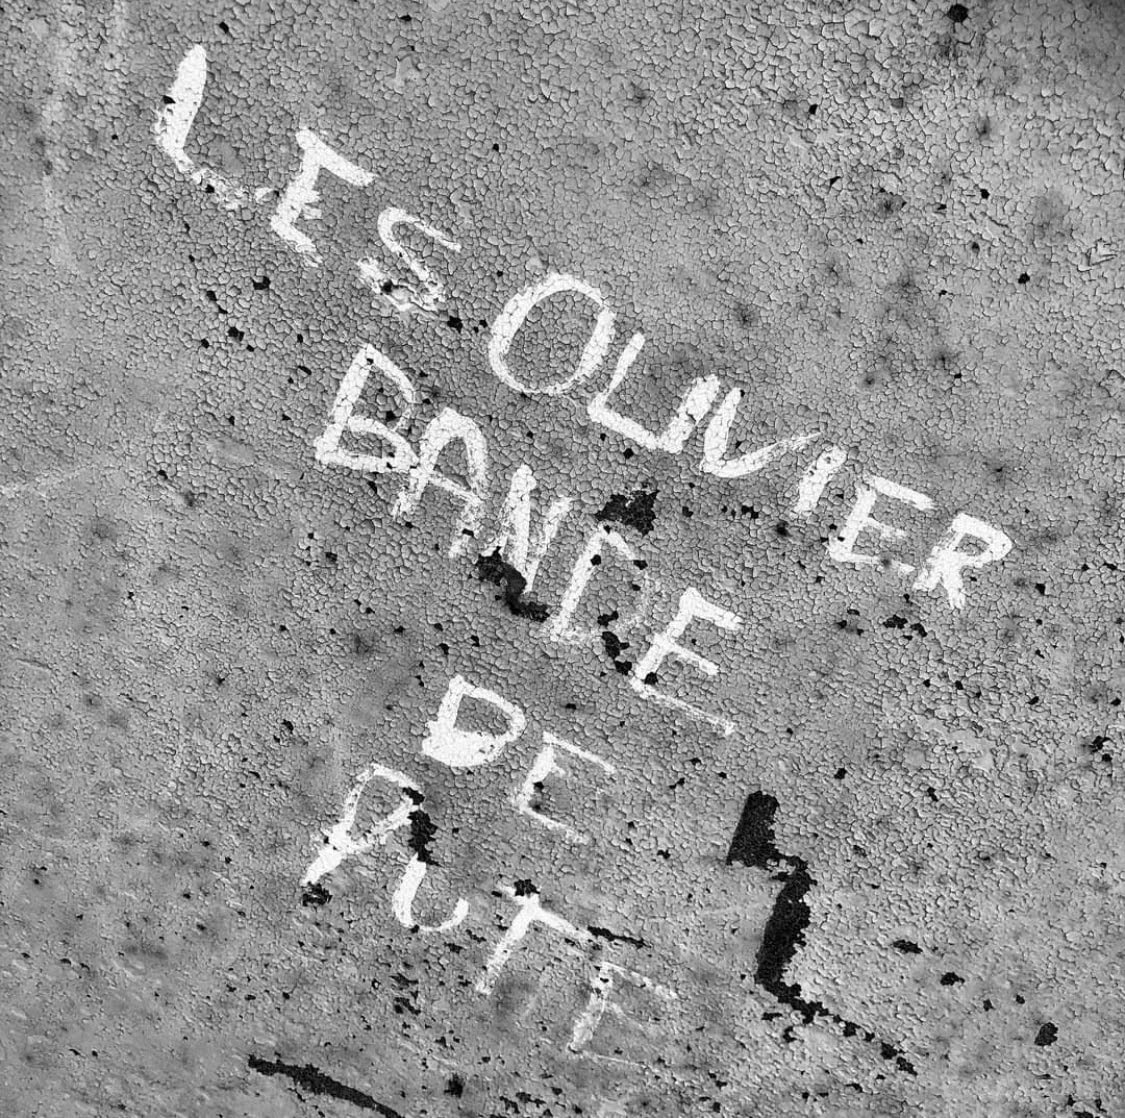 LES OLIVIER
BANDE
DE
PUTE